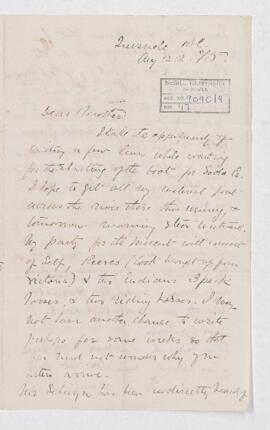 Quesnele BC
Aug 22. /75
McGILL UNIVERSITY
ACC. NO. 909C/9
REF. 17
Dear Mother,
I take the opportunity of
writing a few lines while waiting
for the starting of the boat for Soda Ck.
I hope to get all my material put
across the river there this evening &
tomorrow morning steer westward.
My party for the present will consist
of Self, Reeves (Cook brought up from
Victoria) & two Indians 5 pack
horses, & two riding horses. I may
not have another chance to write
perhaps for some weeks so that
you need not wonder why no
letters arrive.
Mr Selwyn has been indirectly heard of